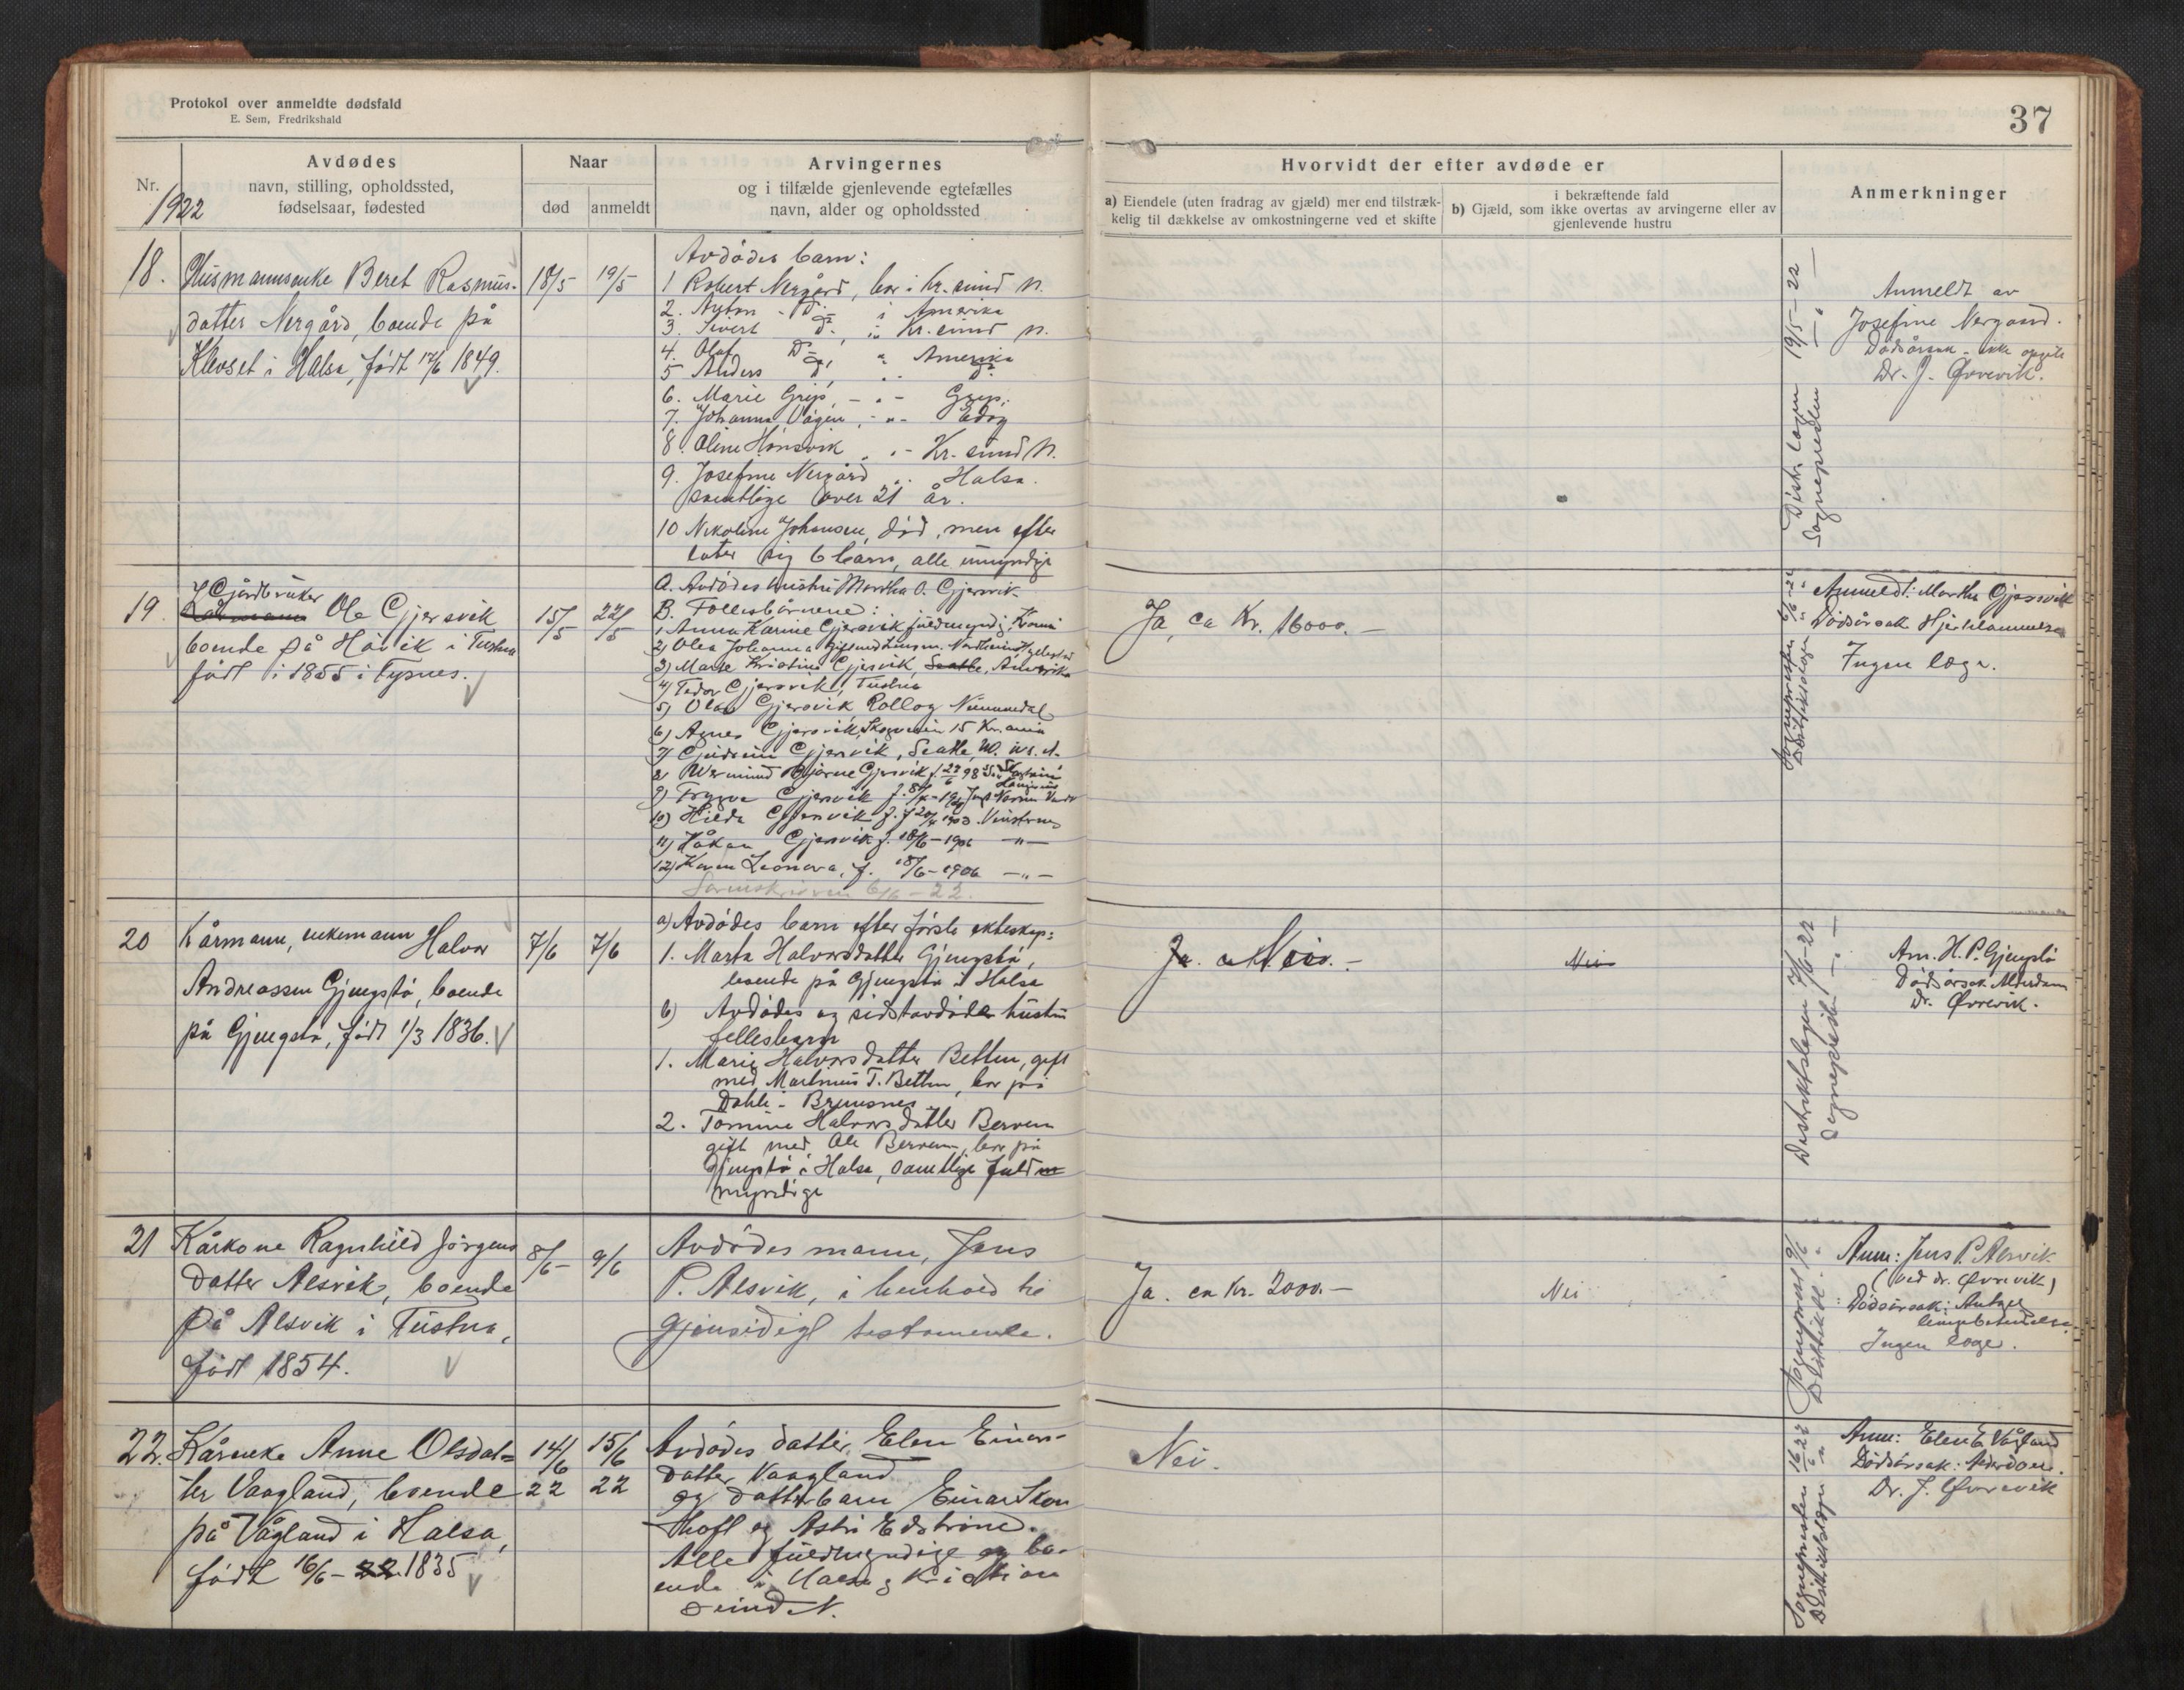 Protokol over anmeldte dødsfald
E. Sem, Fredrikshald
37
Nr.
1922
Avdødes
navn, stilling, opholdssted,
fødselsaar, fødested
Naar
død
anmeldt
Arvingernes
og i tilfælde gjenlevende egtefælles
navn, alder og opholdssted
Hvorvidt der efter avdøde er
a) Eiendele (uten fradrag av gjæld) mer end tilstræk-
kelig til dækkelse av omkostningerne ved et skifte
i bekræftende fald
b) Gjæld, som ikke overtas av arvingerne eller av
gjenlevende hustru
Anmerkninger
18. Husmannsenke Beret Rasmus-
datter Nergård, boende på
Klevset i Halsa, født 17/6 1849.
18/5
19/5
Avdødes barn:
1 Robert Nergård, bor i Kr.sund N.
2. Anton - Do - i Amerika
3. Sivert do. " Kr.sund N.
4. Olaf Do, " Amerika
5 Anders do, " do.
6. Marie Grip, - " - Grip.
7. Johanna Vågen, - " - Edøy
8. Oline Hønsvik " - Kr.sund N.
9. Josefine Nergård " Halsa.
samtlige over 21 år.
10 Nikoline Johansen, død, men efter
later sig 6 barn, alle umyndige
Distr. lægen 19/5-22
Sognepresten - " -
Anmeldt av
Josefine Nergård.
Dødsårsak - ikke opgit
Dr. J. Øvrevik.
19. Gårdbruker
Ole Gjersvik
boende på Håvik i Tustna
født i 1855 i Fysnes.
15/5
22/5
A. Avdødes hustru Martha O. Gjersvik
B. Fellesbårnene:
1, Anna Karine Gjersvik fuldmyndig,
2) Olea Johanna gift med
3) Marie Kristine Gjersvik, Seatle, Amerika
4) Tedor Gjersvik, Tustna
5) Olav Gjersvik Rolløy Nummedal
6) Agnes Gjersvik, Skogveien 15 Kr.ania
7) Gudrun Gjersvik, Seatle, W. U.S.A.
8) Wermund Bjarne Gjersvik f. 22/6 98
9) Trygve Gjersvik f.
10) Hilda Gjersvik f. 20/4 1903.
11) Håkon Gjersvik f. 18/6-1906 - " -
12) Karen Leonora, f. 18/6-1906 - " -
Sorenskriveren 6/6-22.
Ja, ca Kr. 16000.-
Sognepresten 6/6-22
Distriktslægen "
Anmeldt: Martha Gjersvik
Dødsårsak Hjerteslammelse
Ingen læge.
20 Kårmann, enkemann Halvor
Andreassen Gjengstø, boende
på Gjengstø, født 1/3 1836.
7/6
7/6
a) Avdødes barn efter første ekteskap:
1. Marta Halvorsdatter Gjengstø,
boende på Gjengstø i Halsa
b) Avdødes og sidstavdøde hustru
fellesbarn
1. Marie Halvorsdatter Betten, gift
med Martinus T. Betten, bor på
Dahle - Bremsnes
2. Tomine Halvorsdatter Berven
gift med Ole Berven, bor på
Gjengstø i Halsa, samtlige fuld
myndige
Ja. Nei. -
Nei
Distriktslægen 7/6-22
Sognepresten - " -
Anm. H. P. Gjengstø
Dødsårsak Alderdom
Dr. Øvrevik.
21 Kårkone Ragnhild Jørgens
datter Alsvik, boende
på Alsvik i Tustna,
født 1854.
8/6-
9/6
Avdødes mann, Jens
P. Alsvik, i henhold til
gjensidigt testamente.
Ja. ca Kr. 2000.-
Nei
Sogneprest 9/6
Distriktsl. "
Anm: Jens P. Alsvik
(ved dr. Øvrevik)
Dødsårsak: Antagl.
lungebetendelse.
Ingen læge.
22. Kårenke Anne Olsdat=
ter Vaagland, boende
på Vågland i Halsa,
født 16/6-22.1835
14/6
22
15/6
22
Avdødes datter, Elen Einars-
datter Vaagland
og datterbarn Einar Skon
hoft og Astri Edstrøm.
Alle fuldmyndige og bo-
ende i Halsa & Kristian
sund N.
Nei.
Sognepresten 16/6-22
Distriktslægen "
Anm: Elen E. Vågland
Dødsårsak: Alderdom.
Dr. J. Øvrevik